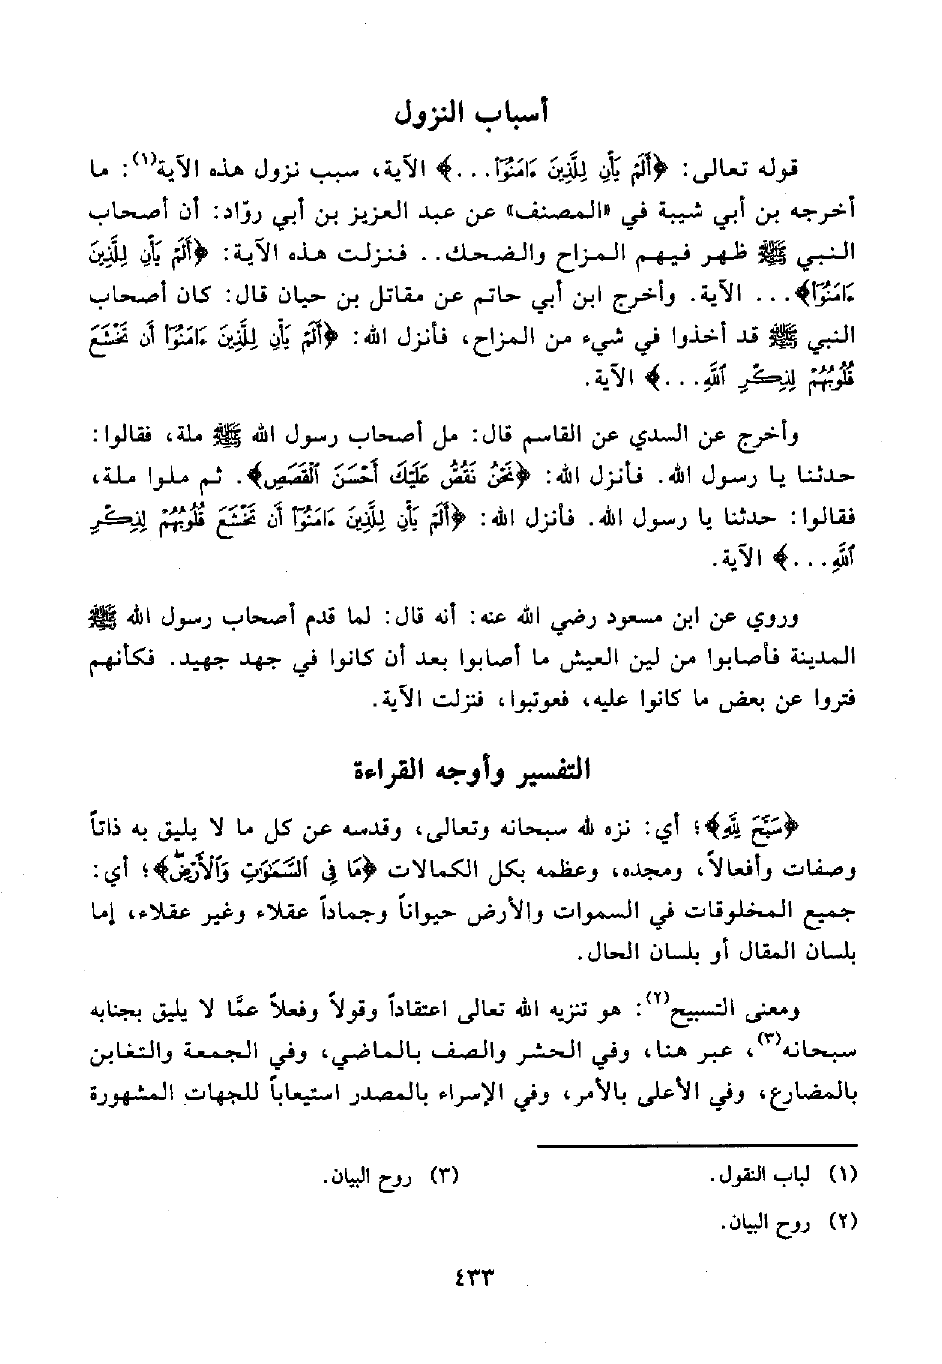 أسباب النزول
قوله تعالى: ﴿أَلَمْ يَأْنِ لِلَّذِينَ ءَامَنُوٓا۟...﴾ الآية، سبب نزول هذه الآية(١): ما
أخرجه بن أبي شيبة في «المصنف» عن عبد العزيز بن أبي روّاد: أن أصحاب
النبي ﷺ ظهر فيهم المزاح والضحك.. فنزلت هذه الآية: ﴿أَلَمْ يَأْنِ لِلَّذِينَ
ءَامَنُوٓا۟﴾... الآية. وأخرج ابن أبي حاتم عن مقاتل بن حيان قال: كان أصحاب
النبي ﷺ قد أخذوا في شيء من المزاح، فأنزل الله: ﴿أَلَمْ يَأْنِ لِلَّذِينَ ءَامَنُوٓا۟ أَن تَخْشَعَ
قُلُوبُهُمْ لِذِكْرِ ٱللَّهِ...﴾ الآية.
وأخرج عن السدي عن القاسم قال: مل أصحاب رسول الله ﷺ ملة، فقالوا:
حدثنا يا رسول الله. فأنزل الله: ﴿نَحْنُ نَقُصُّ عَلَيْكَ أَحْسَنَ ٱلْقَصَصِ﴾. ثم ملوا ملة،
فقالوا: حدثنا يا رسول الله. فأنزل الله: ﴿أَلَمْ يَأْنِ لِلَّذِينَ ءَامَنُوٓا۟ أَن تَخْشَعَ قُلُوبُهُمْ لِذِكْرِ
ٱللَّهِ...﴾ الآية.
وروي عن ابن مسعود رضي الله عنه: أنه قال: لما قدم أصحاب رسول الله ﷺ
المدينة فأصابوا من لين العيش ما أصابوا بعد أن كانوا في جهد جهيد. فكأنهم
فتروا عن بعض ما كانوا عليه، فعوتبوا، فنزلت الآية.
التفسير وأوجه القراءة
﴿سَبَّحَ لِلَّهِ﴾؛ أي: نزه لله سبحانه وتعالى، وقدسه عن كل ما لا يليق به ذاتاً
وصفات وأفعالاً، ومجده، وعظمه بكل الكمالات ﴿مَا فِى ٱلسَّمَٰوَٰتِ وَٱلْأَرْضِ﴾؛ أي:
جميع المخلوقات في السموات والأرض حيواناً وجماداً عقلاء وغير عقلاء، إما
بلسان المقال أو بلسان الحال.
ومعنى التسبيح(٢): هو تنزيه الله تعالى اعتقاداً وقولاً وفعلاً عمَّا لا يليق بجنابه
سبحانه(٣)، عبر هنا، وفي الحشر والصف بالماضي، وفي الجمعة والتغابن
بالمضارع، وفي الأعلى بالأمر، وفي الإسراء بالمصدر استيعاباً للجهات المشهورة
(١) لباب النقول.
(٢) روح البيان.
(٣) روح البيان.
٤٣٣